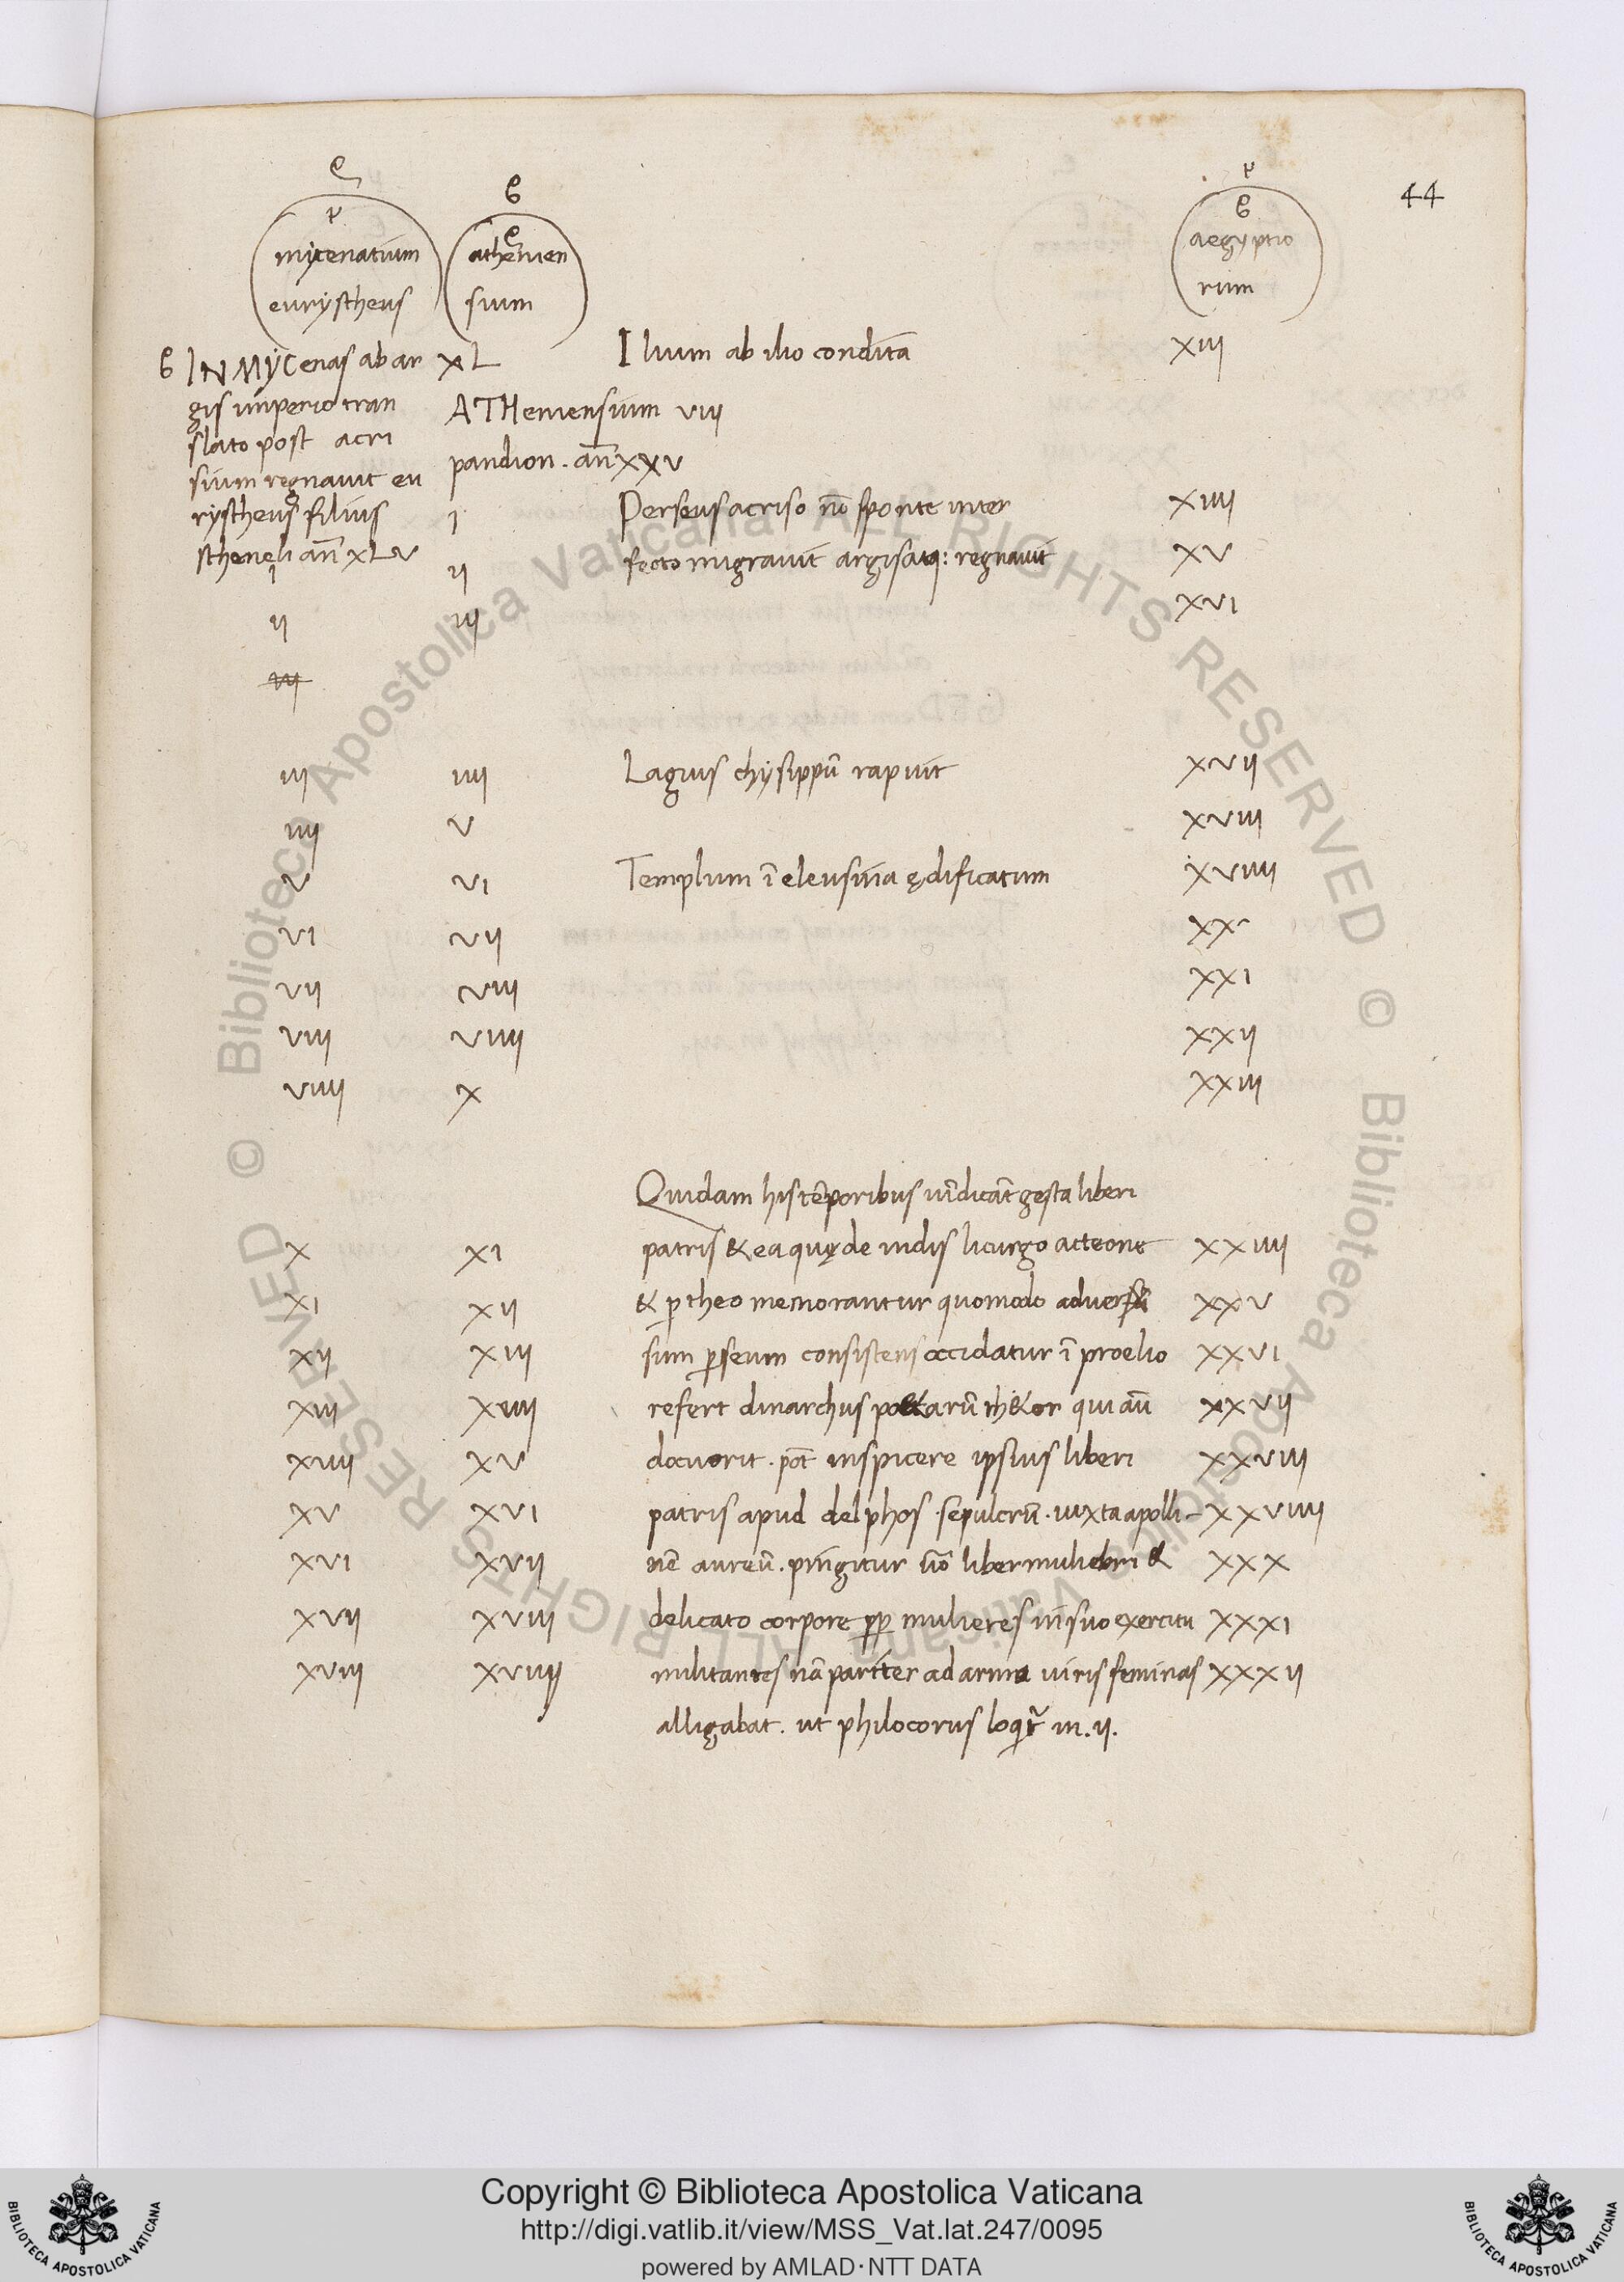 44
mycenarum
eurystheus
athenien
sium
aegyptio
rum
IN MYCenas ab ar
gis imperio tran
slato post acri
sium regnavit eu
rystheus filius
stheneli an̄ xLv
xL
ATHeniensium viii
pandion . an̄ xxv
Ilium ab ilio conditā
xiii
i
Perseus acriso nō sponte inter
xiiii
i
ii
fecto migravit argis atq: regnavit
xv
ii
iii
xvi
iii
iii
iiii
Lagius chysippū rapuit
xvii
iiii
v
xviii
v
vi
Templum ī eleusina ędificatum
xviiii
vi
vii
xx
vii
viii
xxi
viii
viiii
xxii
viiii
x
xxiii
Quidam his tēporibus vīdicāt gesta liberi
x
xi
patris & ea quę de indis licurgo acteone
xxiiii
xi
xii
& p theo memorantur quomodo adversū
xxv
xii
xiii
sum pseum consistens occidatur ī proelio
xxvi
xiii
xiiii
refert dinarchus po&arū rh&or qui aū
xxvii
xiiii
xv
docuorit . pōt inspicere ipsius liberi
xxviii
xv
xvi
patris apud delphos . sepulcrū . iuxta apolli-
xxviiii
xvi
xvii
nē aureū . pingitur v̄o liber muliebri &
xxx
xvii
xviii
delicato corpore pp mulieres in suo exercitu
xxxi
xviii
xviiii
militantes nā pariter ad arma viris feminas
xxxii
alligabat . ut philocorus loqit̃ in . ii.
Copyright © Biblioteca Apostolica Vaticana
http://digi.vatlib.it/view/MSS_Vat.lat.247/0095
powered by AMLAD·NTT DATA
BIBLIOTECA APOSTOLICA VATICANA
BIBLIOTECA APOSTOLICA VATICANA
© Biblioteca Apostolica Vaticana ALL RIGHTS RESERVED
© Biblioteca Apostolica Vaticana ALL RIGHTS RESERVED